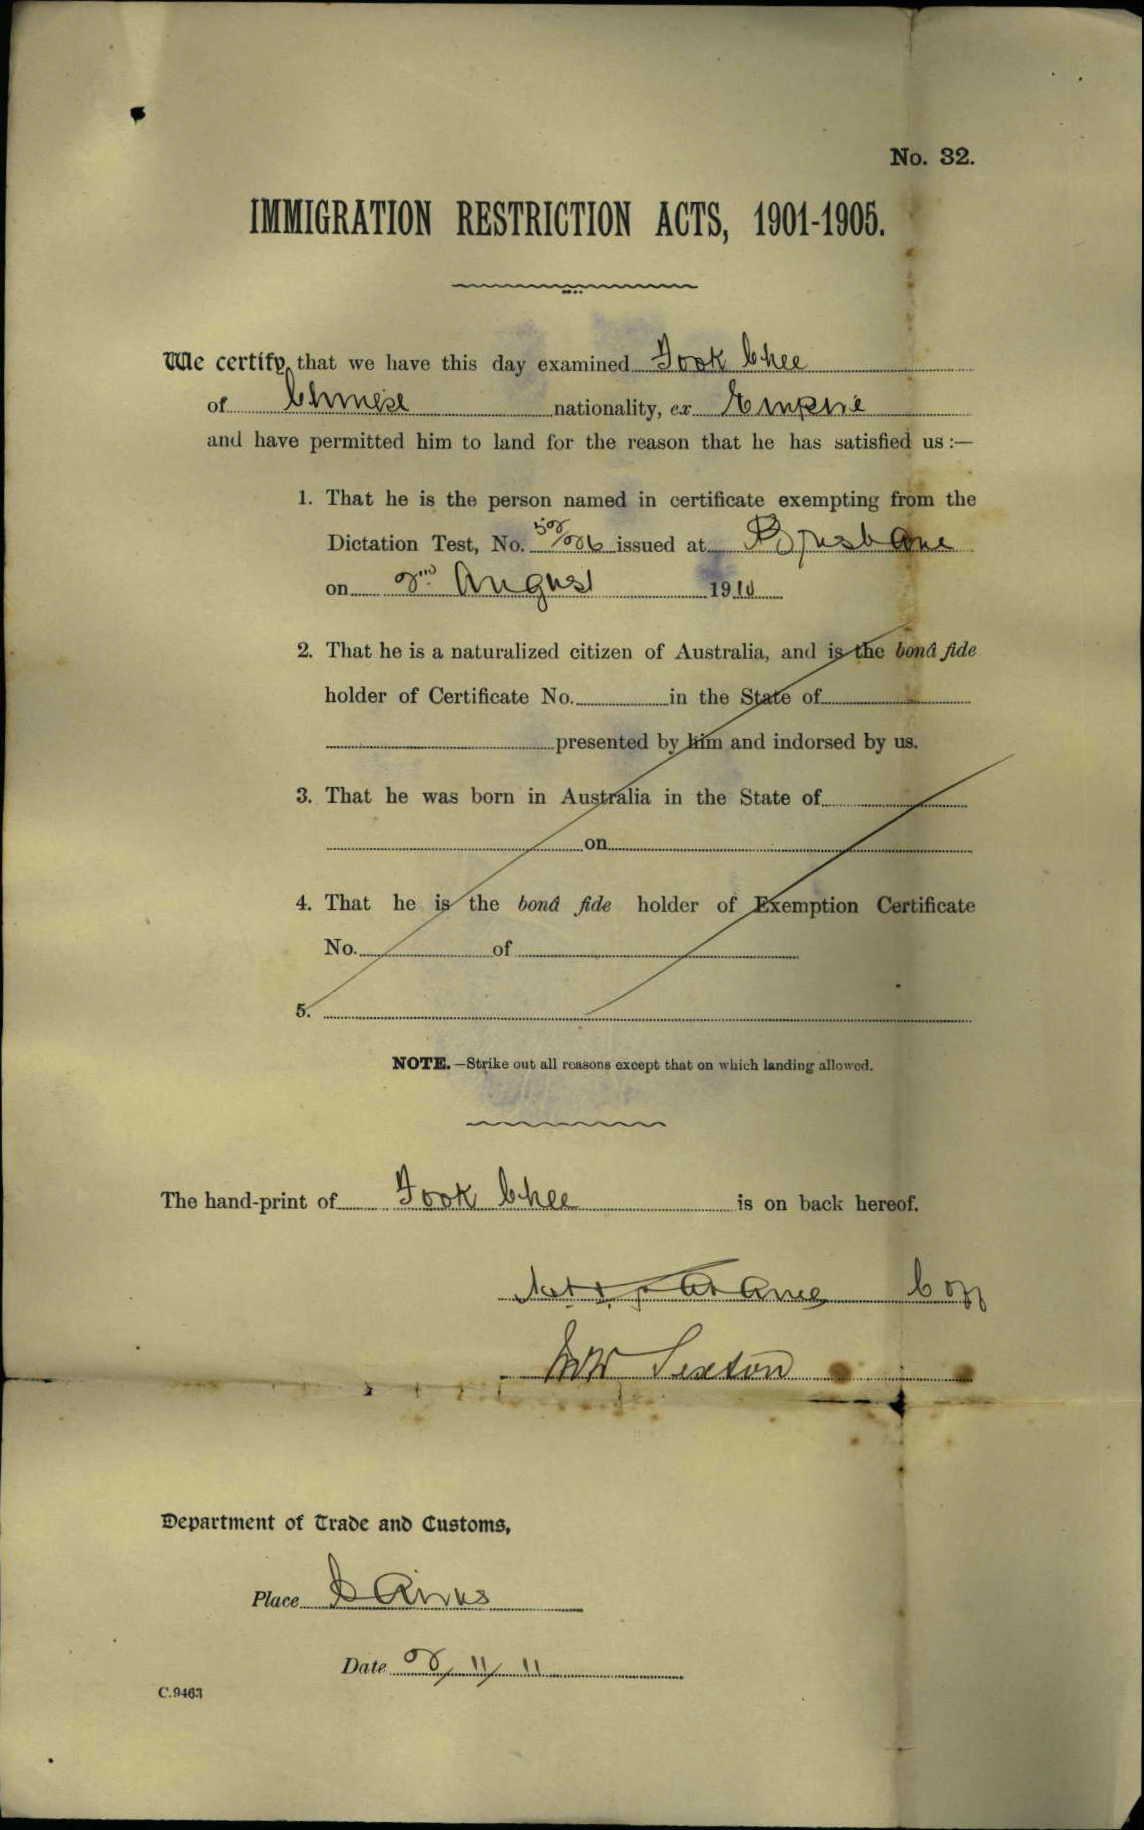 No. 32.
IMMIGRATION RESTRICTION ACTS, 1901-1905.
We certify, that we have this day examined Fook Chee
of Chinese nationality, ex Empire
and have permitted him to land for the reason that he has satisfied us :—
1. That he is the person named in certificate exempting from the
Dictation Test, No. issued at Brisbane
on 2nd August 1910
2. That he is a naturalized citizen of Australia, and is the bonâ fide
holder of Certificate No. in the State of
presented by him and indorsed by us.
3. That he was born in Australia in the State of
on
4. That he is the bonâ fide holder of Exemption Certificate
No. of
5.
NOTE.—Strike out all reasons except that on which landing allowed.
The hand-print of Fook Chee is on back hereof.
Sexton
Department of Trade and Customs,
Place Cairns
Date 11/11
C.9463